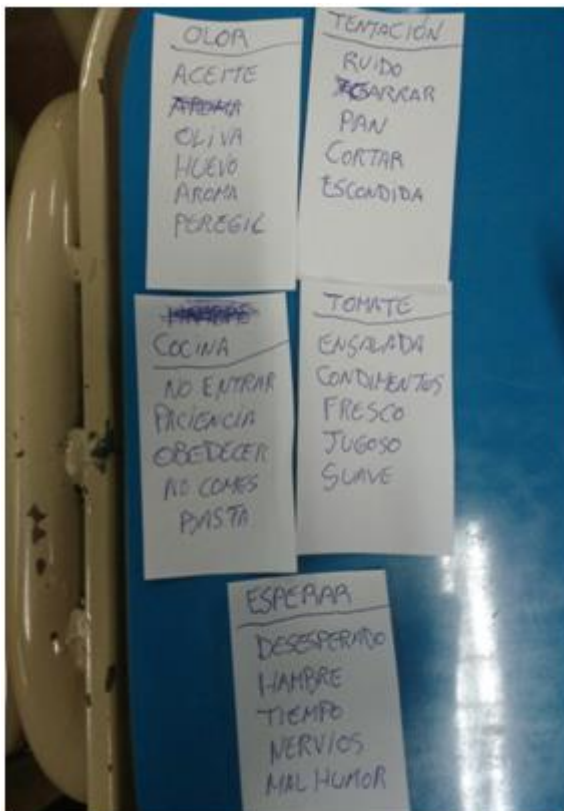 OLOR
ACEITE
AROMA
OLIVA
HUEVO
AROMA
PEREGIL
TENTACIÓN
RUIDO
AGARRAR
PAN
CORTAR
ESCONDIDA
HAMBRE
COCINA
NO ENTRAR
PACIENCIA
OBEDECER
NO COMES
BASTA
TOMATE
ENSALADA
CONDIMENTOS
FRESCO
JUGOSO
SUAVE
ESPERAR
DESESPERADO
HAMBRE
TIEMPO
NERVIOS
MAL HUMOR